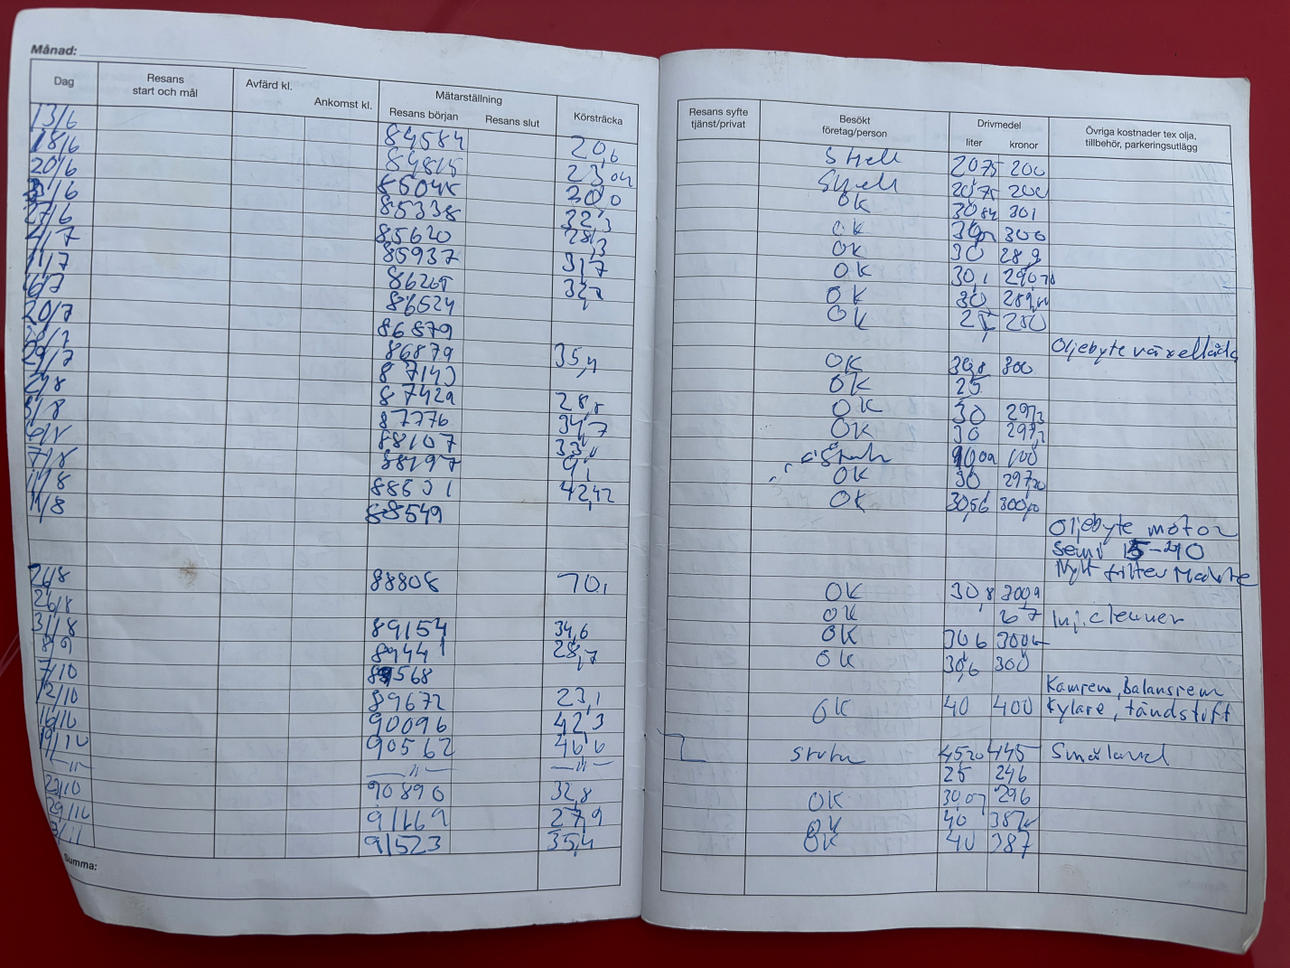 Månad:
Dag Resans start och mål Avfärd kl. Ankomst kl. Mätarställning Resans början Resans slut Körsträcka
13/6 84584 20,6
18/6 84815 23,04
20/6 85045 30,0
85338 32,3
27/6 85620 28,3
4/7 85937 31,7
11/7 86265 32,7
16/7 86524
20/7 86879
86879 35,4
29/7 87143
2/8 87429 28,5
87776 34,7
88107 33,1
7/8 88197 9,1
88531 42,42
11/8 88549
26/8 88808 70,1
26/8
31/8 89154 34,6
8/9 89441 28,7
89568
7/10 89672 23,1
12/10 90096 42,3
16/10 90562 46,6
19/10 —"— —"—
—"— 90890 32,8
91169 27,9
29/10 91523 35,4
3/11
Summa:
Resans syfte tjänst/privat Besökt företag/person Drivmedel liter kronor Övriga kostnader tex olja, tillbehör, parkeringsutlägg
Shell 20,75 200
Shell 20,75 200
OK 30,84 301
OK 300
OK 30 289
OK 30,1 290,70
OK 30 289
OK 250
Oljebyte växellåda
OK 30,8 300
OK 25
OK 30 297,3
OK 30 297,3
100
OK 30 297,20
OK 30,56 300,10
Oljebyte motor
semi 15-40
Nytt filter
OK 30,8 300
OK 67 Inj. cleaner
OK 30,6 300
OK 30,6 300
Kamrem, balansrem
OK 40 400 Kylare, tändstift
45,20 445 Småland
25 246
OK 30,07 296
OK 40 387
OK 40 387